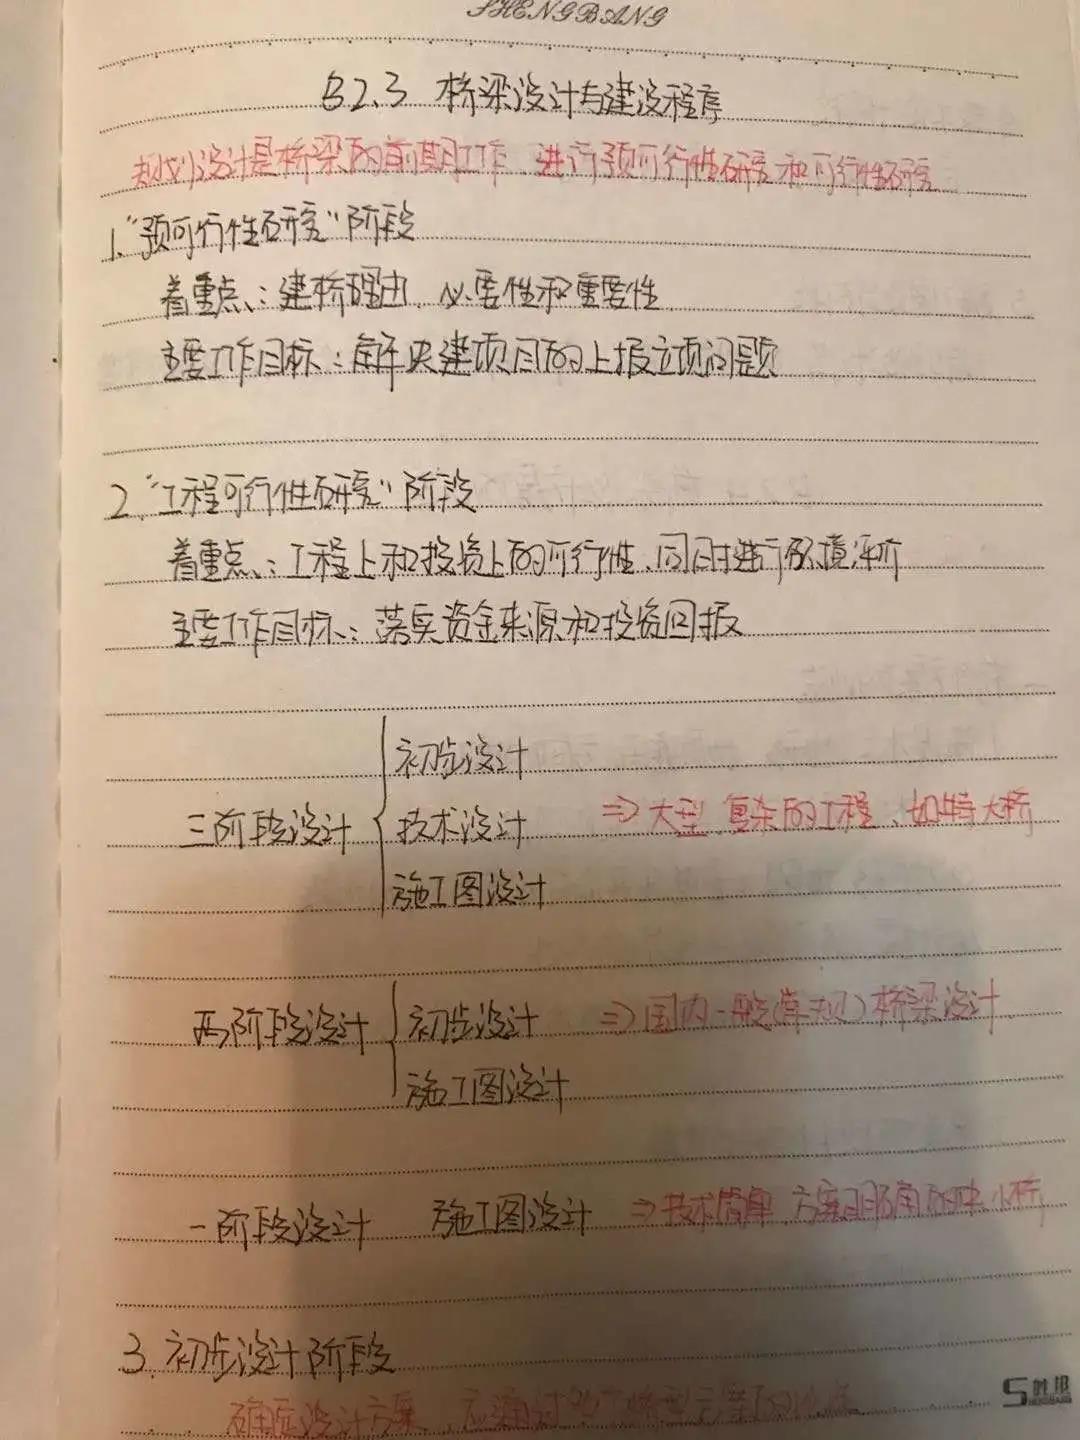 SHENGBANG
§2.3 桥梁设计与建设程序
规划设计是桥梁的前期工作、进行预可行性研究和可行性研究
1、"预可行性研究"阶段
着重点：建桥理由、必要性和重要性
主要工作目标：解决建项目的上报立项问题
2."工程可行性研究"阶段
着重点：工程上和投资上的可行性、同时进行环境评价
主要工作目标：落实资金来源和投资回报
初步设计
三阶段设计 技术设计 ⇒大型、复杂的工程、如特大桥
施工图设计
两阶段设计 初步设计 ⇒国内一般(常规)桥梁设计
施工图设计
一阶段设计 施工图设计 ⇒技术简单、方案明确的中小桥
3.初步设计阶段
确定设计方案、应通过
胜邦
SHENGBANG